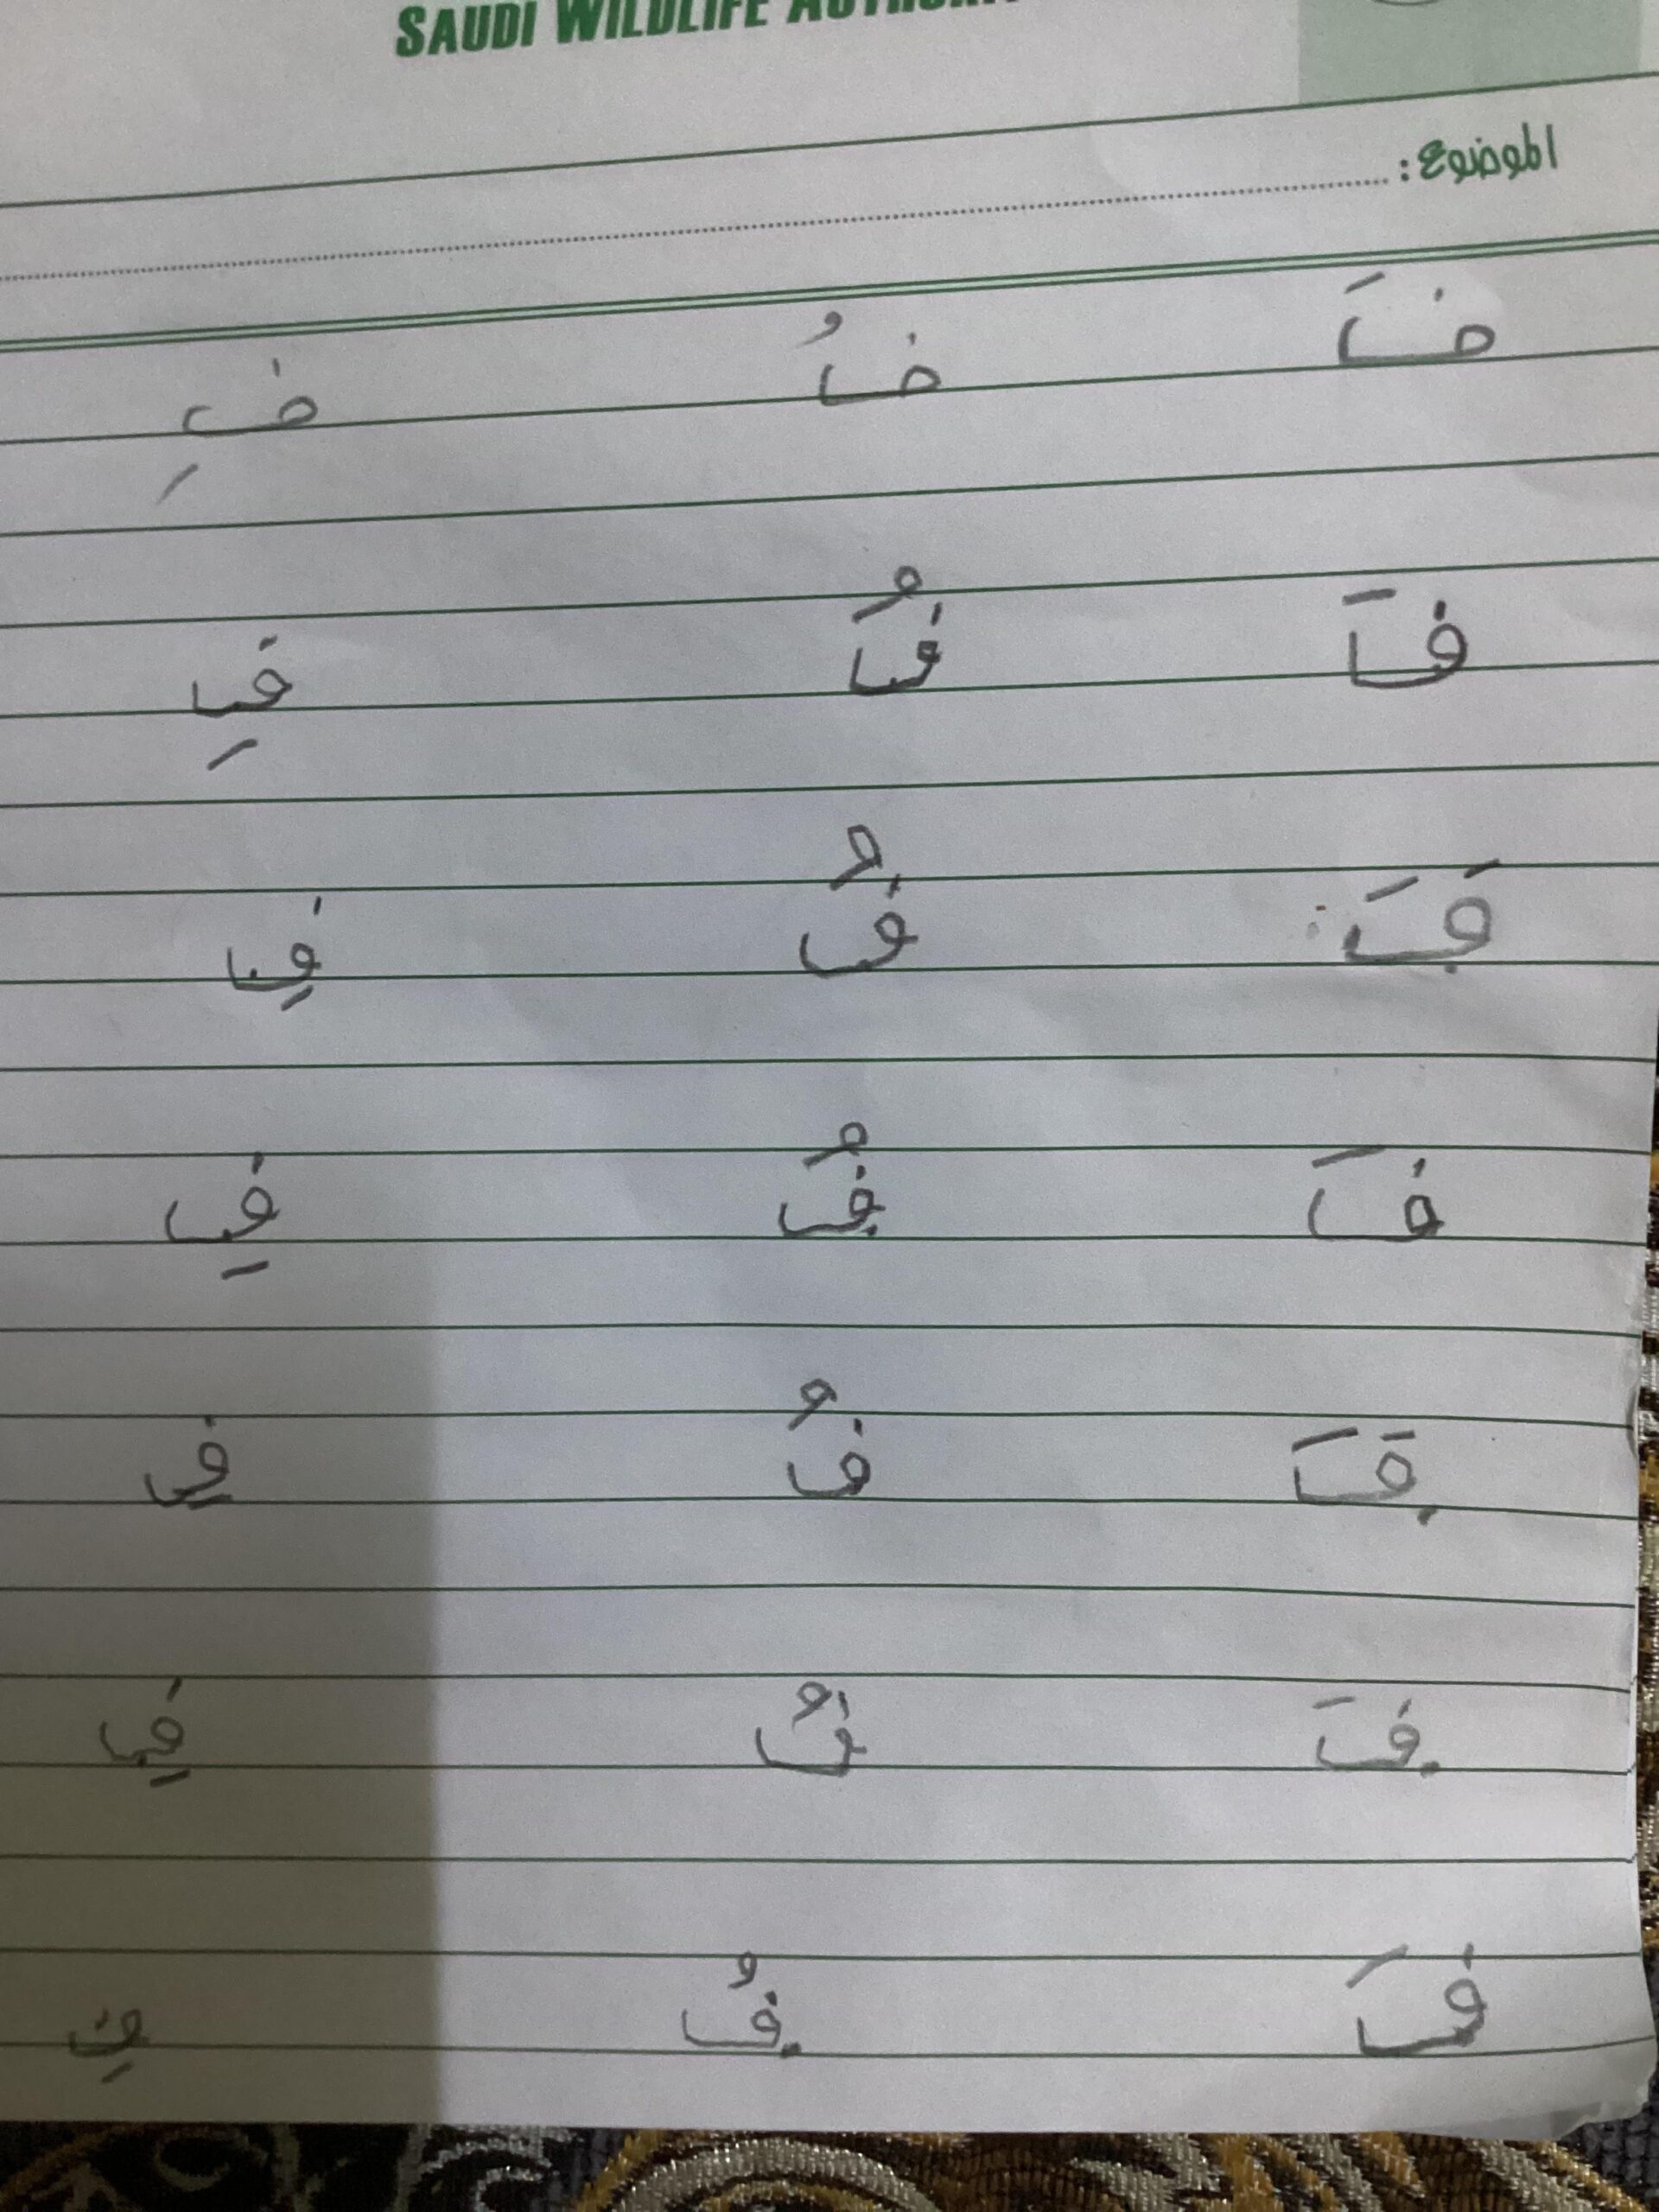 SAUDI WILDLIFE
الموضوع:
فَ فُ فِ
فَ فُ فِ
فَ فُ فِ
فَ فُ فِ
فَ فُ فِ
فَ فُ فِ
فَ فُ فِ